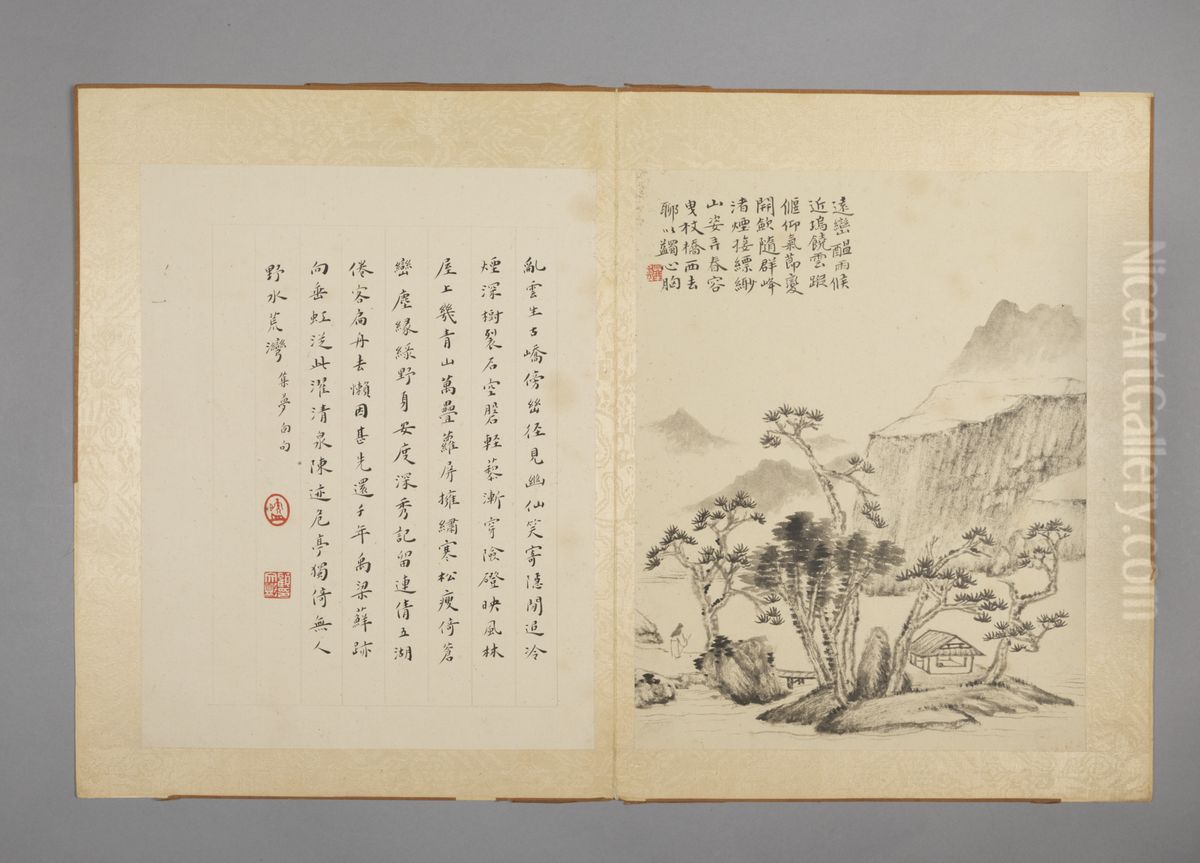 遠巒醞雨候
近塢饒雲蹤
偃仰氣節變
開斂隨群峰
渚煙接縹緲
山姿弄春容
曳杖橋西去
聊以蠲心胸
亂雲生古嶠傍徑見幽仙笑寄隱閒追冷
煙深樹裂石空磬輕藜漸穿險磴映風林
屋上幾青山萬疊蘿屏擁繡寒松瘦倚蒼
巒塵緣綠野身安度深秀記留連倩五湖
倦客扁舟去懶因甚先還千年禹梁蘚跡
向垂虹此濯清泉陳迹危亭獨倚無人
野水荒灣 集夢句
NiceArtGallery.com